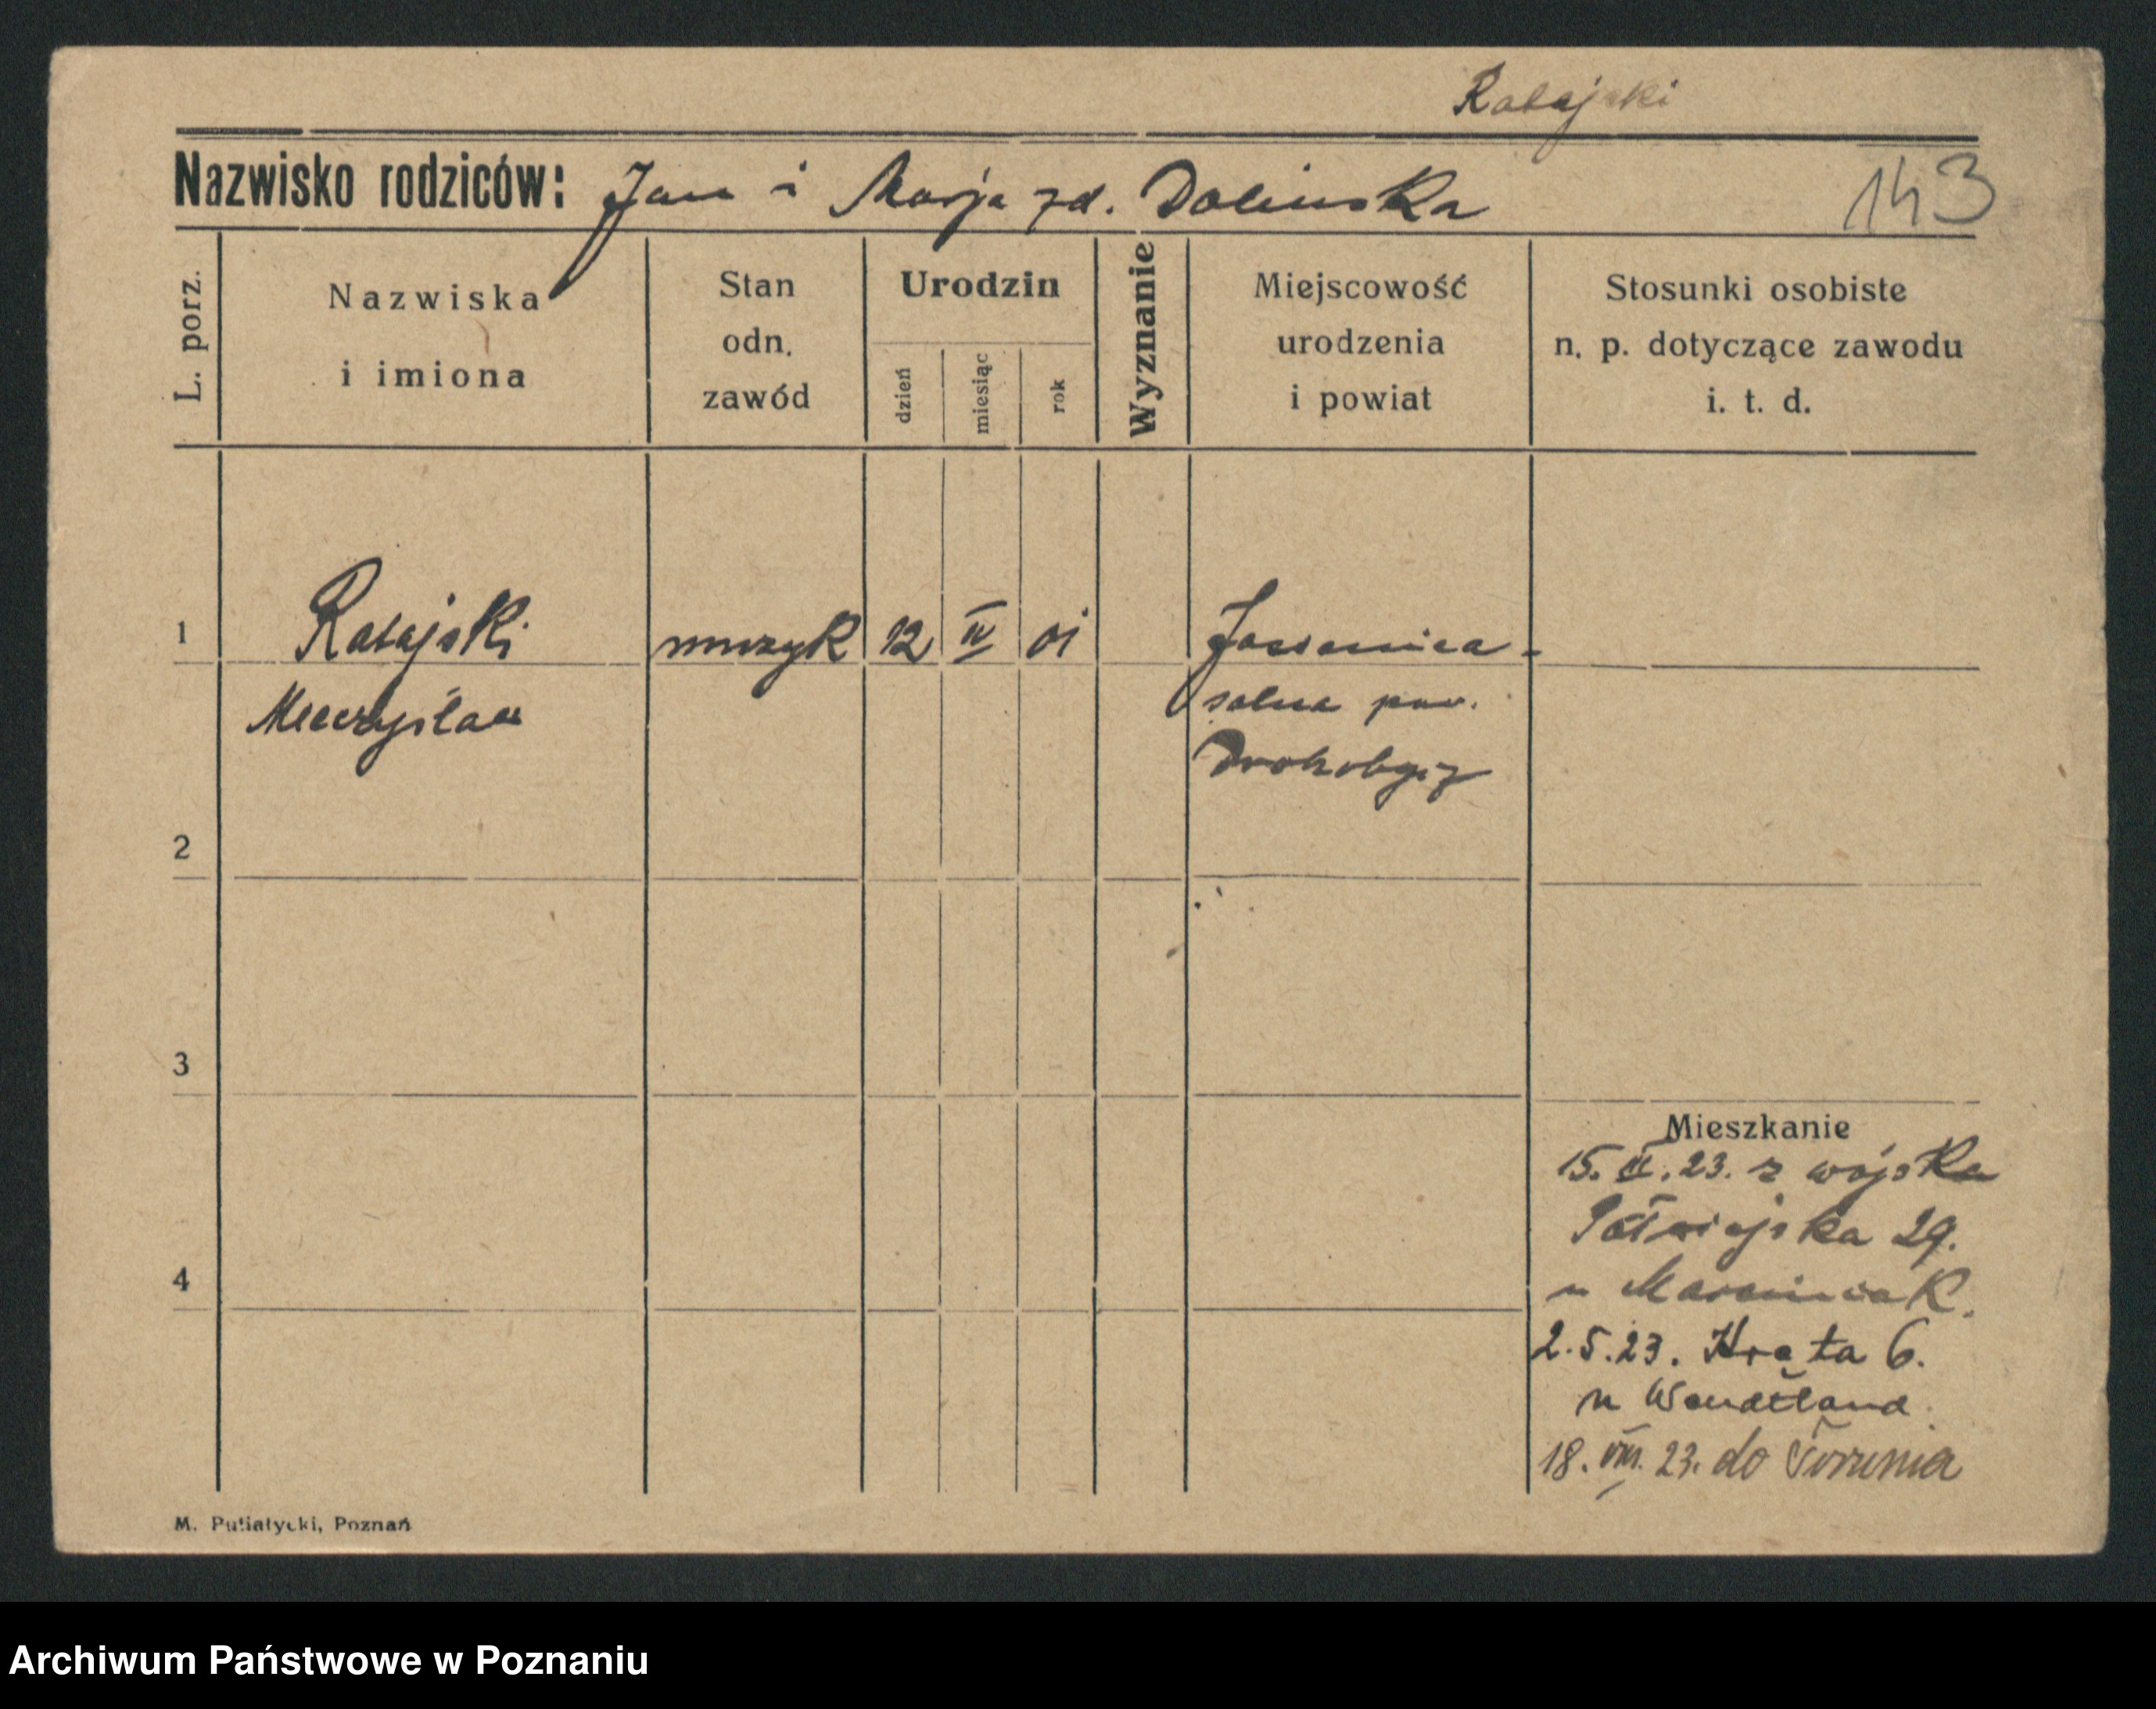 Ratajski
Nazwisko rodziców: Jan i Marja zd. Dolinska
143
L. porz.
Nazwiska
i imiona
Stan
odn.
zawód
Urodzin
dzień
miesiąc
rok
Wyznanie
Miejscowość
urodzenia
i powiat
Stosunki osobiste
n. p. dotyczące zawodu
i. t. d.
1 Ratajski muzyk 12 IV 01 Jasienica-
Mieczysław solna pow.
Drohobycz
2
3
Mieszkanie
15. III. 23. z wojska
Półwiejska 29.
4
u Marciniak.
2.5.23. Kręta 6.
u Wendtland.
18. VIII. 23. do Torunia
M. Putiatycki, Poznań
Archiwum Państwowe w Poznaniu